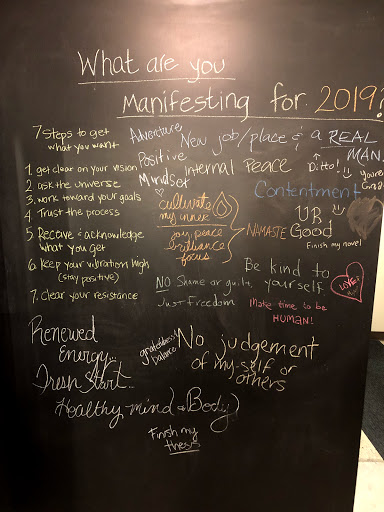 What are you
Manifesting for 2019?
7 steps to get
what you want
1. get clear on your vision
2. ask the universe
3. work toward your goals
4. Trust the process
5. Receive & acknowledge
what you get
6. Keep your vibration high
(stay positive)
7. Clear your resistance
Adventure
New job/place & a REAL
MAN.
Positive
Mindset
Internal Peace
Ditto!
you're
Contentment
cultivate
my inner
joy, peace
brilliance
focus
NAMASTE
UR
Good
Finish my novel
Be kind to
yourself
NO Shame or guilt,
Just freedom
LOVE
Make time to be
HUMAN!
Renewed
Energy...
Fresh Start...
balance
No judgement
of my self or
others
Healthy mind & Body
Finish my
thesis